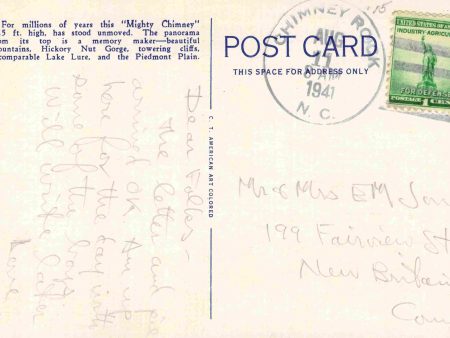 For millions of years this "Mighty Chimney"
5 ft. high, has stood unmoved. The panorama
om its top is a memory maker—beautiful
ountains, Hickory Nut Gorge, towering cliffs,
comparable Lake Lure, and the Piedmont Plain.
C. T. AMERICAN ART COLORED
Dear Folks-
The letter and
arrived OK. Am up
here for the day with
some of the
Will write later
Love
POST CARD
THIS SPACE FOR ADDRESS ONLY
CHIMNEY ROCK
AUG
11
AM
1941
N. C.
UNITED STATES OF AMERICA
INDUSTRY AGRICUL
FOR DEFENSE
POSTAGE 1
Mr & Mrs E M
199 Fairview St
New Britain
Conn